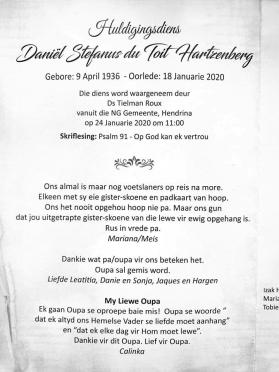 Huldigingsdiens
Daniël Stefanus du Toit Hartzenberg
Gebore: 9 April 1936 - Oorlede: 18 Januarie 2020
Die diens word waargeneem deur
Ds Tielman Roux
vanuit die NG Gemeente, Hendrina
op 24 Januarie 2020 om 11:00
Skriflesing: Psalm 91 - Op God kan ek vertrou
Ons almal is maar nog voetslaners op reis na more.
Elkeen met sy eie gister-skoene en padkaart van hoop.
Ons het nooit opgehou hoop nie pa. Maar ons gun
dat jou uitgetrapte gister-skoene van die lewe vir ewig opgehang is.
Rus in vrede pa.
Mariana/Meis
Dankie wat pa/oupa vir ons beteken het.
Oupa sal gemis word.
Liefde Leatitia, Danie en Sonja, Jaques en Hargen
My Liewe Oupa
Ek gaan Oupa se oproepe baie mis! Oupa se woorde "
dat ek altyd ons Hemelse Vader se liefde moet aanhang"
en "dat ek elke dag vir Hom moet lewe".
Dankie vir dit Oupa. Lief vir Oupa.
Calinka
Izak H
Maria
Tobie